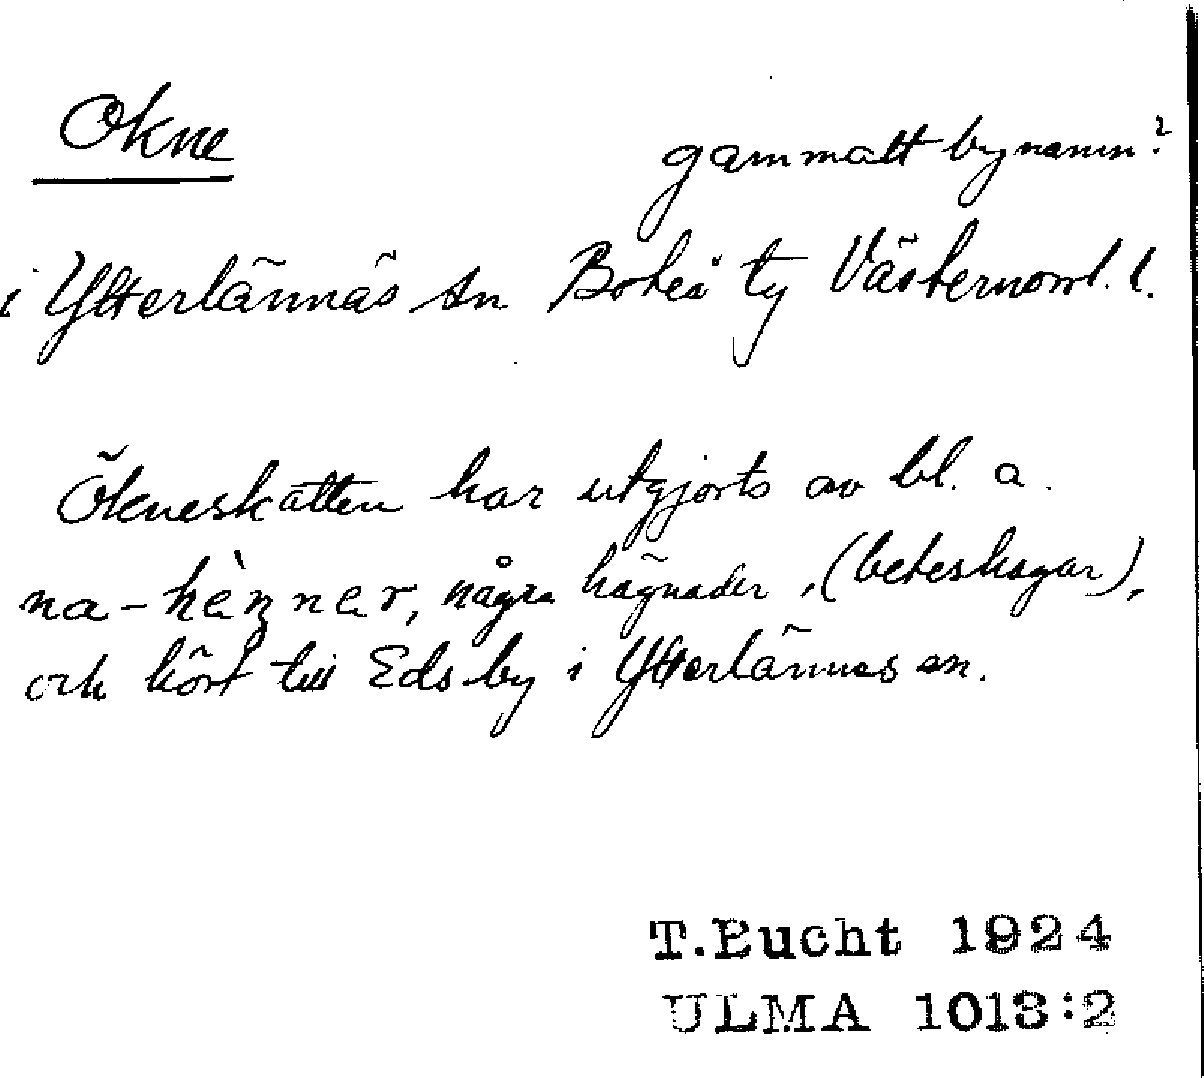 Okne
gammalt bynamn?
i Ytterlännäs sn Boteå tg Västernorrl. l.
Ökneskatten har utgjorts av bl. a.
na-hèŋner, några hägnader, (beteshagar),
och hört till Eds by i Ytterlännäs sn.
T.Bucht 1924
ULMA 1013:2